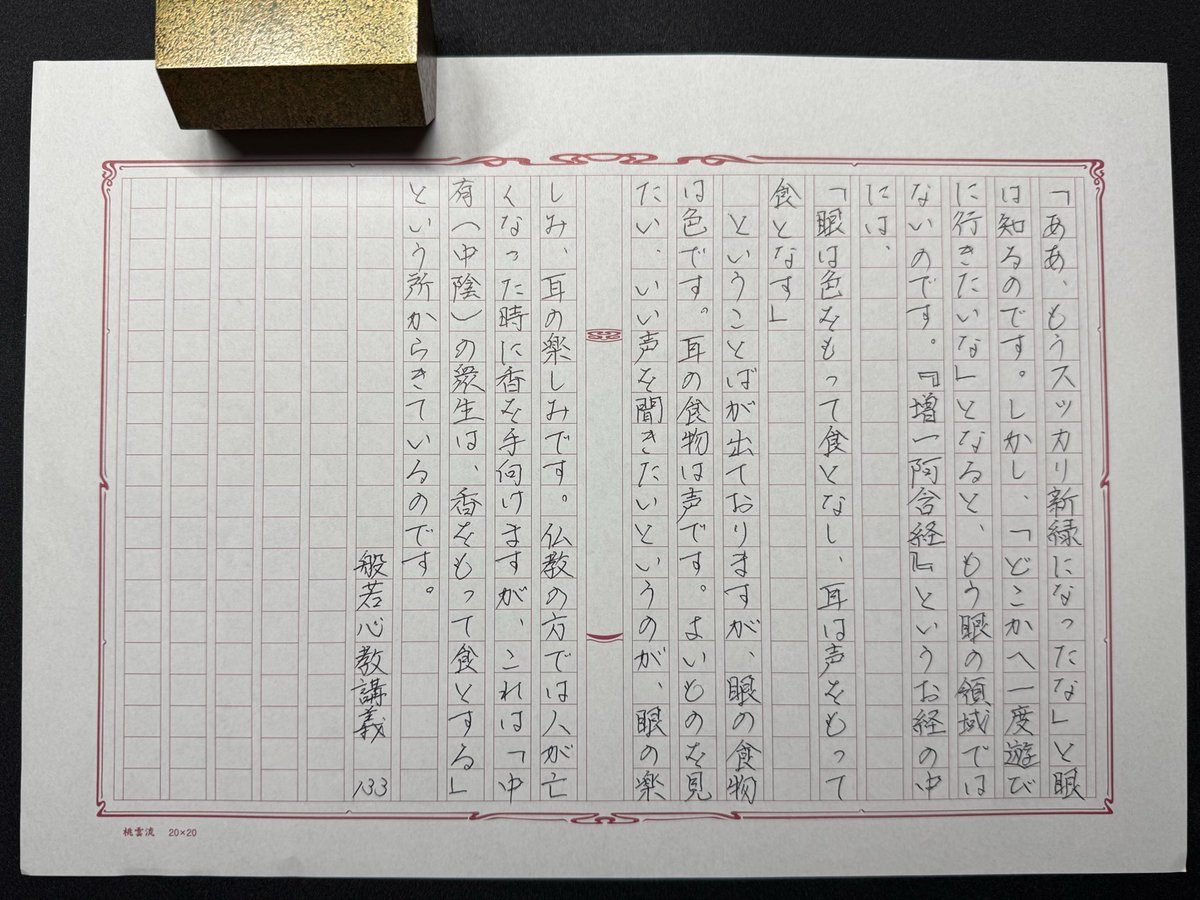 「ああ、もうスッカリ新緑になったな」と眼
は知るのです。しかし、「どこかへ一度遊び
に行きたいな」となると、もう眼の領域では
ないのです。『増一阿含経』というお経の中
には、
「眼は色をもって食となし、耳は声をもって
食となす」
ということばが出ておりますが、眼の食物
は色です。耳の食物は声です。よいものを見
たい、いい声を聞きたいというのが、眼の楽
しみ、耳の楽しみです。仏教の方では人が亡
くなった時に香を手向けますが、これは「中
有(中陰)の衆生は、香をもって食とする」
という所からきているのです。
般若心教講義 133
桃雲流 20×20